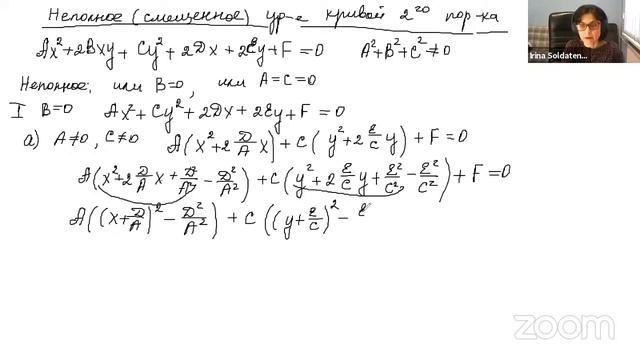 Неполное (смещенное) ур-е кривой 2го пор-ка
Ax²+2Bxy+Cy²+2Dx+2Ey+F=0 A²+B²+C²≠0
Неполное, или B=0, или A=C=0
I B=0 Ax²+Cy²+2Dx+2Ey+F=0
а) A≠0, C≠0 A(x²+2 D/A x)+C(y²+2 E/C y)+F=0
A(x²+2 D/A x+D²/A²-D²/A²)+C(y²+2 E/C y+E²/C²-E²/C²)+F=0
A((x+D/A)²-D²/A²)+C((y+E/C)²-E
Irina Soldaten...
zoom